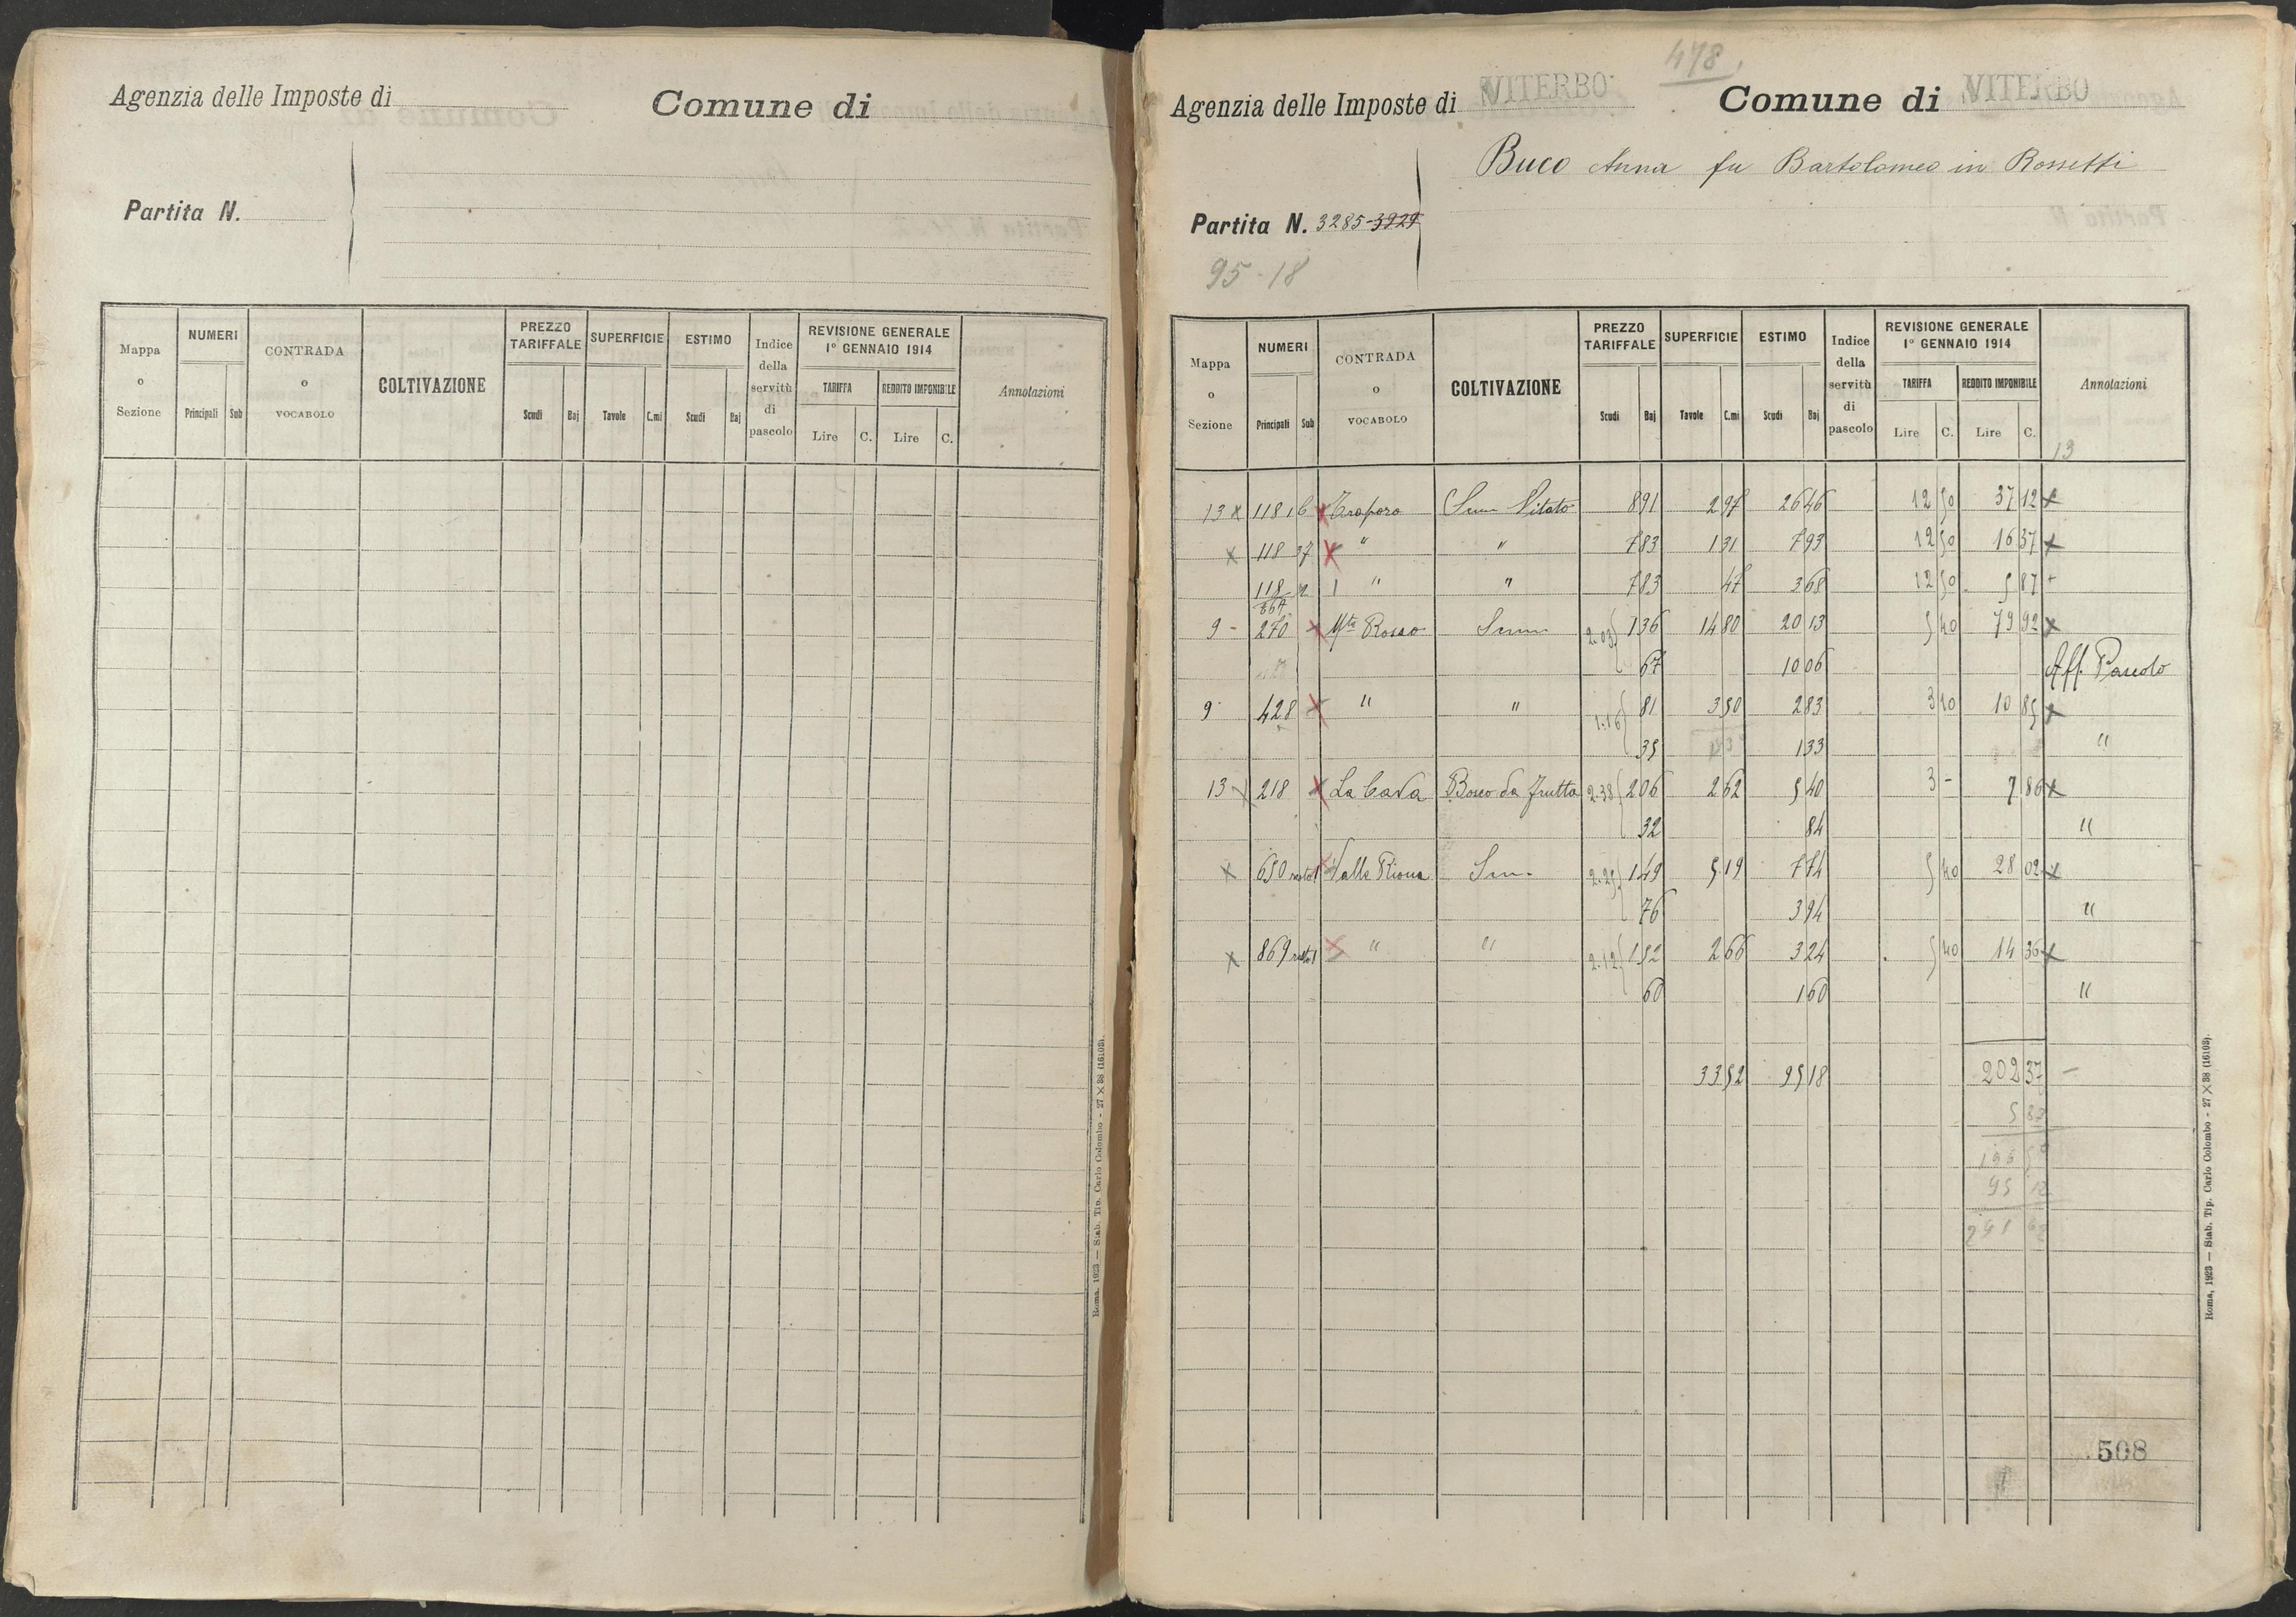 Agenzia delle Imposte di
Comune di
Partita N.
Mappa o Sezione
NUMERI
Principali
Sub
CONTRADA o VOCABOLO
COLTIVAZIONE
PREZZO TARIFFALE
Scudi
Baj
SUPERFICIE
Tavole
C.mi
ESTIMO
Scudi
Baj
Indice della servitù di pascolo
REVISIONE GENERALE
1º GENNAIO 1914
TARIFFA
Lire
C.
REDDITO IMPONIBILE
Lire
C.
Annotazioni
Roma, 1923 — Stab. Tip. Carlo Colombo - 27 × 38 (16103).
478
Agenzia delle Imposte di VITERBO
Comune di VITERBO
Buco Anna fu Bartolomeo in Rossetti
Partita N. 3285-3929
95-18
Mappa o Sezione
NUMERI
Principali
Sub
CONTRADA o VOCABOLO
COLTIVAZIONE
PREZZO TARIFFALE
Scudi
Baj
SUPERFICIE
Tavole
C.mi
ESTIMO
Scudi
Baj
Indice della servitù di pascolo
REVISIONE GENERALE
1º GENNAIO 1914
TARIFFA
Lire
C.
REDDITO IMPONIBILE
Lire
C.
Annotazioni
13
13 x 118 6 x Sem Vitato 8 91 2 97 26 46 12 50 37 12 x
x 118 37 x " " 7 83 1 31 7 93 12 50 16 37 x
118 1 " " 7 83 47 3 68 12 50 5 87 +
9 - 270 x Mte Rosso Sem 2.03 1 36 14 80 20 13 5 40 79 92 x
67 10 06 Aff. Pascolo
9 428 x " " 1.16 81 3 50 2 83 3 10 10 85 x
35 1 33 "
13 218 x La Cava Bosco da frutta 2.38 2 06 2 62 5 40 3 - 7 86 x
32 84 "
x 650 x Valle Sem. 2.25 1 49 5 19 7 74 5 40 28 02 x
76 3 94 "
x 869 x " " 2.12 1 52 2 66 3 24 5 40 14 36 x
60 1 60 "
33 52 95 18 202 37 -
5 87
196 50
95 18
291 68
508
Roma, 1923 — Stab. Tip. Carlo Colombo - 27 × 38 (16103).